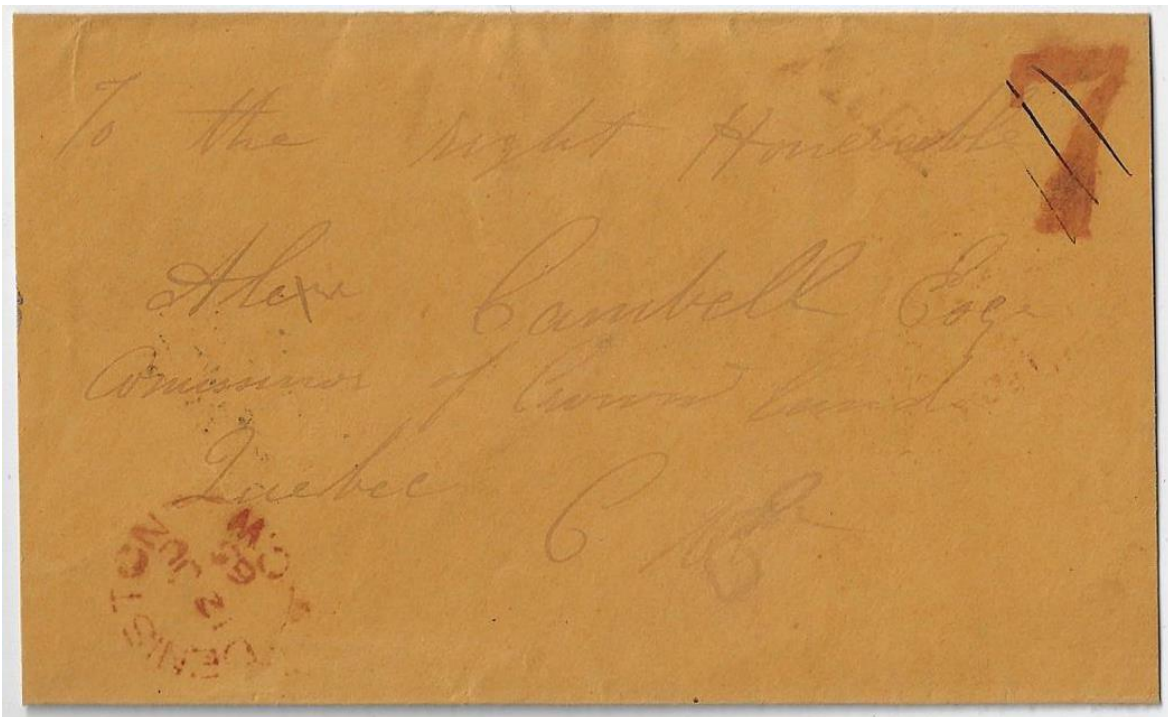 7
To the right Honerable
Alexr Cambell Esqr
Comissinor of Crown Land
Quebec
C
C.W
21